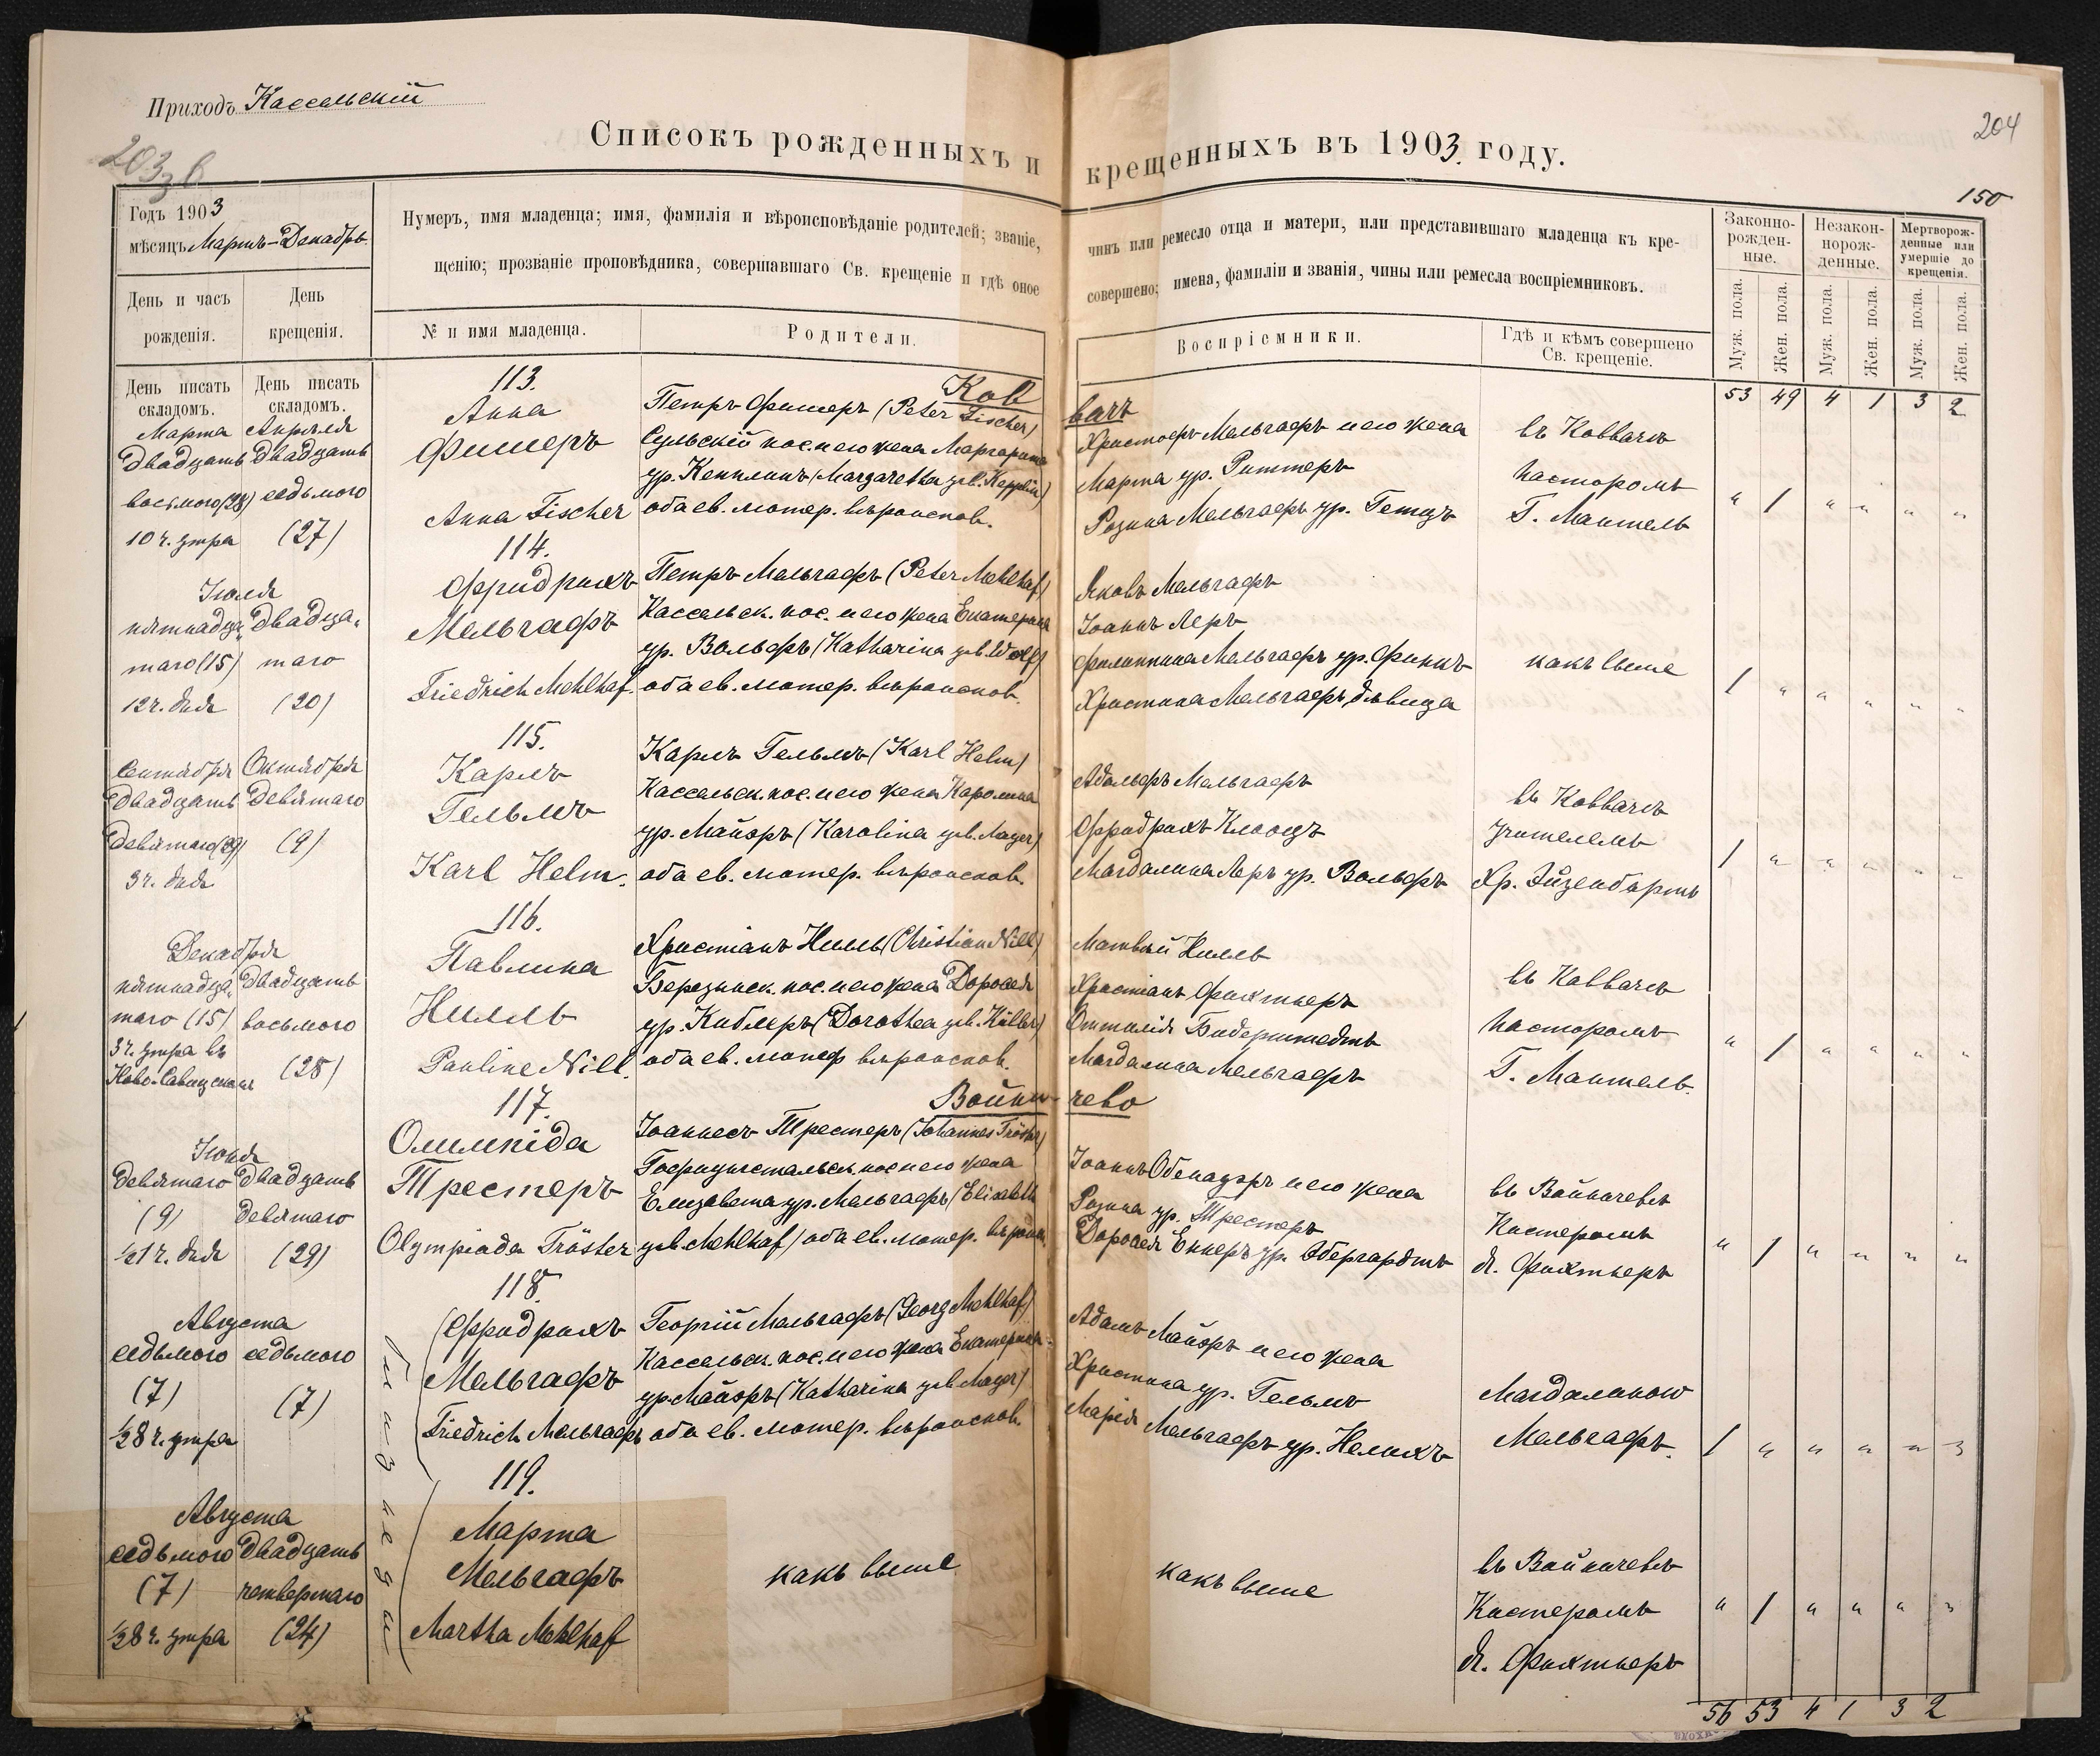 Приходъ Кассельскій
203 з б
204
150
Списокъ рожденныхъ и крещенныхъ въ 1903. году.
Годъ 1903
мѣсяцъ Мартъ-Декабрь
Нумеръ, имя младенца; имя, фамилія и вѣроисповѣданіе родителей; званіе, чинъ или ремесло отца и матери, или представившаго младенца къ кре-
щенію; прозваніе проповѣдника, совершавшаго Св. крещеніе и гдѣ оное совершено; имена, фамиліи и званія, чины или ремесла воспріемниковъ.
Законно-
рожден-
ные.
Незакон-
норож-
денные.
Мертворож-
денные или
умершіе до
крещенія.
День и часъ
рожденія.
День
крещенія.
№ и имя младенца.
Родители.
Воспріемники.
Гдѣ и кѣмъ совершено
Св. крещеніе.
Муж. пола.
Жен. пола.
Муж. пола.
Жен. пола.
Муж. пола.
Жен. пола.
День писать
складомъ.
День писать
складомъ.
53 49 4 1 3 2
Ковваръ
Марта
двадцать
восьмого (28)
10 ч. утра
Апрѣля
двадцать
седьмого
(27)
113.
Анна
Фишеръ
Anna Fischer
Петръ Фишеръ (Peter Fischer)
Сульскій пос. и его жена Маргарита
ур. Кепплинъ (Margaretha geb. Kepplin)
оба ев. лютер. вѣроиспов.
Христофъ Мельгафъ и его жена
Марта ур. Риттеръ
Розина Мельгафъ ур. Гетцъ
въ Ковварѣ
пасторомъ
Г. Мантель
" 1 " " " "
Іюля
пятнадца-
таго (15)
12 ч. дня
двадца-
таго
(20)
114.
Фридрихъ
Мельгафъ
Friedrich Mehlhaf.
Петръ Мельгафъ (Peter Mehlhaf)
Кассельск. пос. и его жена Екатерина
ур. Вольфъ (Katharina geb. Wolf)
оба ев. лютер. вѣроиспов.
Яковъ Мельгафъ
Іоаннъ Леръ
Филиппина Мельгафъ ур. Финкъ
Христина Мельгафъ, дѣвица
какъ выше
1 " " " " "
Сентября
двадцать
девятаго (29)
3 ч. дня
Октября
девятаго
(9)
115.
Карлъ
Гельмъ
Karl Helm.
Карлъ Гельмъ (Karl Helm)
Кассельск. пос. и его жена Каролина
ур. Майеръ (Karolina geb. Mayer)
оба ев. лютер. вѣроиспов.
Адольфъ Мельгафъ
Фридрихъ Клоотцъ
Магдалина Леръ ур. Вольфъ
въ Ковварѣ
учителемъ
Хр. Эйзенбартъ
1 " " " " "
Декабря
пятнадца-
таго (15)
3 ч. утра въ
Ново-Савицкомъ
двадцать
восьмого
(28)
116.
Павлина
Нилль
Pauline Nill.
Христіанъ Нилль (Christian Nill)
Березинск. пос. и его жена Доротея
ур. Киблеръ (Dorothea geb. Kübler)
оба ев. лютер. вѣроиспов.
Матвѣй Нилль
Христіанъ Фихтнеръ
Оттилія Бидерштедтъ
Магдалина Мельгафъ
въ Ковварѣ
пасторомъ
Г. Мантель.
" 1 " " " "
Войничево
Іюня
девятаго
(9)
½1 ч. дня
двадцать
девятаго
(29)
117.
Олимпіда
Трестеръ
Olympiada Tröster
Іоаннесъ Трестеръ (Johannes Tröster)
Гофнунгстальск. пос. и его жена
Елизавета ур. Мельгафъ (Elisabeth
geb. Mehlhaf) оба ев. лютер. вѣроисп.
Іоаннъ Обенауэръ и его жена
Розина ур. Трестеръ
Доротея Еккеръ ур. Эбергардтъ
въ Войничевѣ
Кистеромъ
Я. Фихтнеръ
" 1 " " " "
Августа
седьмого
(7)
½8 ч. утра
седьмого
(7)
близнецы
118.
Фридрихъ
Мельгафъ
Friedrich Мельгафъ
Георгій Мельгафъ (Georg Mehlhaf)
Кассельск. пос. и его жена Екатерина
ур. Майеръ (Katharina geb. Mayer)
оба ев. лютер. вѣроиспов.
Адамъ Майеръ и его жена
Христина ур. Гельмъ
Марія Мельгафъ ур. Нелихъ
Магдалиною
Мельгафъ.
1 " " " " "
Августа
седьмого
(7)
½8 ч. утра
двадцать
четвертаго
(24)
119.
Марта
Мельгафъ
Martha Mehlhaf
какъ выше
какъ выше
въ Войничевѣ
Кистеромъ
Я. Фихтнеръ
" 1 " " " "
56 53 4 1 3 2